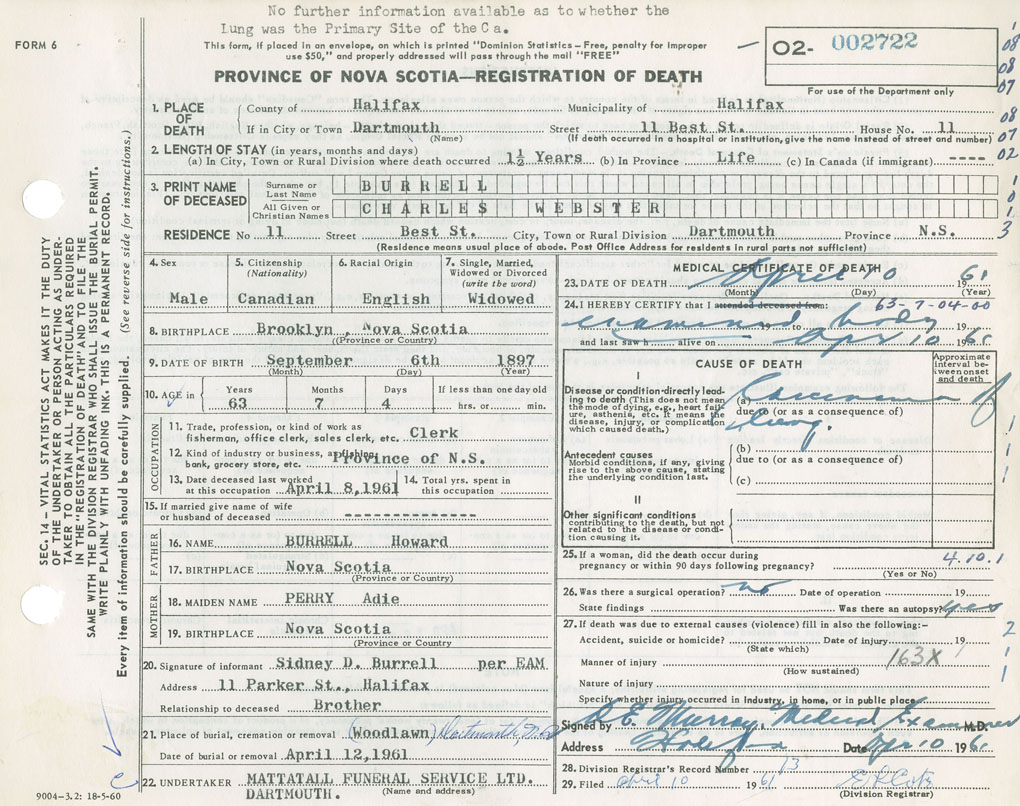 No further information available as to whether the
Lung was the Primary Site of the Ca.
FORM 6
This form, if placed in an envelope, on which is printed "Dominion Statistics – Free, penalty for improper
use $50," and properly addressed will pass through the mail "FREE"
02- 002722
For use of the Department only
PROVINCE OF NOVA SCOTIA—REGISTRATION OF DEATH
1. PLACE OF DEATH
County of Halifax Municipality of Halifax
If in City or Town Dartmouth Street 11 Best St. House No. 11
(Name) (If death occurred in a hospital or institution, give the name instead of street and number)
2. LENGTH OF STAY (in years, months and days)
(a) In City, Town or Rural Division where death occurred 1½ Years (b) In Province Life (c) In Canada (if immigrant) ----
3. PRINT NAME OF DECEASED
Surname or Last Name BURRELL
All Given or Christian Names CHARLES WEBSTER
RESIDENCE No 11 Street Best St. City, Town or Rural Division Dartmouth Province N.S.
(Residence means usual place of abode. Post Office Address for residents in rural parts not sufficient)
4. Sex Male
5. Citizenship (Nationality) Canadian
6. Racial Origin English
7. Single, Married, Widowed or Divorced (write the word) Widowed
8. BIRTHPLACE Brooklyn, Nova Scotia
(Province or Country)
9. DATE OF BIRTH September 6th 1897
(Month) (Day) (Year)
10. AGE in Years 63 Months 7 Days 4 If less than one day old
hrs. or min.
OCCUPATION
11. Trade, profession, or kind of work as
fisherman, office clerk, sales clerk, etc. Clerk
12. Kind of industry or business, as fishing,
bank, grocery store, etc. Province of N.S.
13. Date deceased last worked
at this occupation April 8,1961
14. Total yrs. spent in
this occupation
15. If married give name of wife
or husband of deceased --------------
FATHER
16. NAME BURRELL Howard
17. BIRTHPLACE Nova Scotia
(Province or Country)
MOTHER
18. MAIDEN NAME PERRY Adie
19. BIRTHPLACE Nova Scotia
(Province or Country)
20. Signature of informant Sidney D. Burrell per EAM
Address 11 Parker St., Halifax
Relationship to deceased Brother
21. Place of burial, cremation or removal (Woodlawn)
Date of burial or removal April 12,1961
22. UNDERTAKER MATTATALL FUNERAL SERVICE LTD.
DARTMOUTH. (Name and address)
9004-3.2: 18-5-60
MEDICAL CERTIFICATE OF DEATH
23. DATE OF DEATH April 10 1961
(Month) (Day) (Year)
24. I HEREBY CERTIFY that I attended deceased from: 63-7-04-00
examined 19 to body 19
and last saw h alive on Apr 10 1961
CAUSE OF DEATH
Approximate interval between onset and death
I
Disease or condition directly leading to death (This does not mean the mode of dying, e.g., heart failure, asthenia, etc. It means the disease, injury, or complication which caused death.)
(a) Carcinoma of
due to (or as a consequence of)
Lung.
Antecedent causes
Morbid conditions, if any, giving rise to the above cause, stating the underlying condition last.
(b)
due to (or as a consequence of)
(c)
II
Other significant conditions
contributing to the death, but not related to the disease or condition causing it.
25. If a woman, did the death occur during
pregnancy or within 90 days following pregnancy?
(Yes or No)
4.10.1
26. Was there a surgical operation? no Date of operation 19
State findings Was there an autopsy? yes
27. If death was due to external causes (violence) fill in also the following:-
Accident, suicide or homicide? Date of injury 19
(State which)
Manner of injury 163X
(How sustained)
Nature of injury
Specify whether injury occurred in Industry, in home, or in public place
Signed by Murray, Medical Examiner M.D.
Address Halifax Date Apr 10 1961
28. Division Registrar's Record Number
29. Filed April 10 1961
(Division Registrar)
SEC. 14 – VITAL STATISTICS ACT MAKES IT THE DUTY
OF THE UNDERTAKER OR PERSON ACTING AS UNDER-
TAKER TO OBTAIN ALL THE PARTICULARS REQUIRED
IN THE "REGISTRATION OF DEATH" AND TO FILE THE
SAME WITH THE DIVISION REGISTRAR WHO SHALL ISSUE THE BURIAL PERMIT.
WRITE PLAINLY WITH UNFADING INK. THIS IS A PERMANENT RECORD.
Every item of information should be carefully supplied. (See reverse side for instructions.)